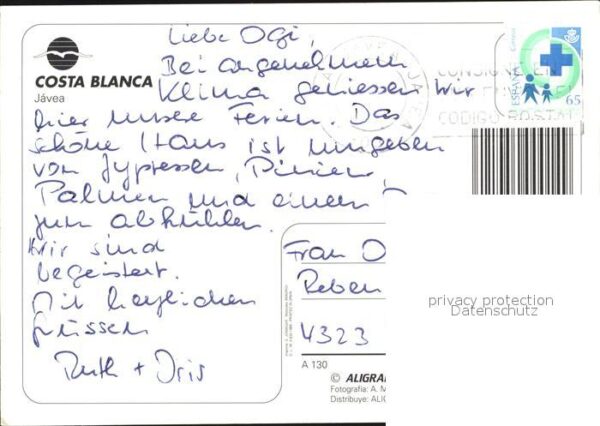 Liebe Ogi,
COSTA BLANCA
Jávea
Bei angenehmem
Klima geniessen wir
hier unsere Ferien. Das
schöne Haus ist umgeben
von Zypressen, Pinien,
Palmen und einem
zum abkühlen.
Wir sind
begeistert.
Mit herzlichen
Grüssen
Ruth + Iris
ESPAÑA
65
CONSIGNE EL
CODIGO POSTAL
Frau O
Reben
4323
privacy protection
Datenschutz
A 130
© ALIGRA
Fotografía: A. M
Distribuye: ALIG